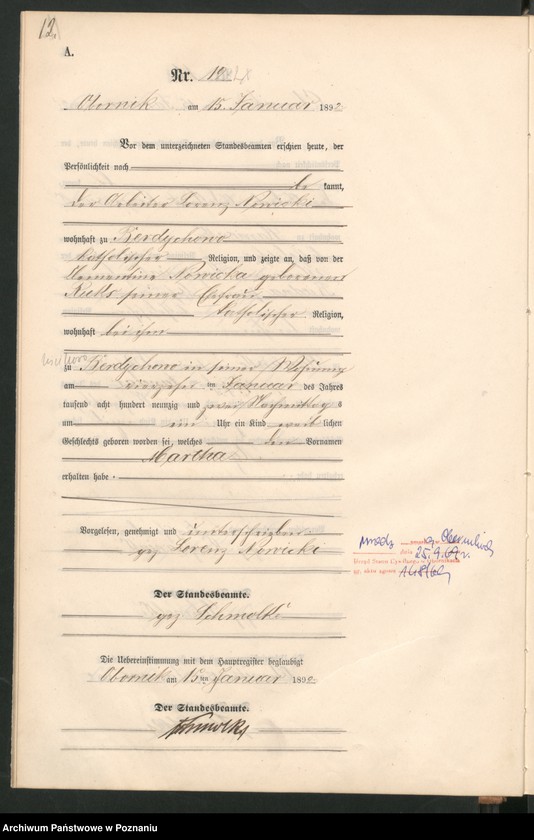 12.
A.
Nr. 12
Obornik am 15. Januar 1892
Vor dem unterzeichneten Standesbeamten erschien heute, der
Persönlichkeit nach
be kannt,
der Arbeiter Lorenz Nowicki
wohnhaft zu Kerdychowo
katholischer Religion, und zeigte an, daß von der
Klementine Nowicka geborenen
seiner Ehefrau
katholischer Religion,
wohnhaft bei ihm
zu Kerdychowo in seiner Wohnung
am vierzehnten Januar des Jahres
tausend acht hundert neunzig und zwei Nachmittags
um ein Uhr ein Kind weib lichen
Geschlechts geboren worden sei, welches den Vornamen
Martha
erhalten habe.
Vorgelesen, genehmigt und unterschrieben
gez Lorenz Nowicki
Der Standesbeamte.
gez
Die Uebereinstimmung mit dem Hauptregister beglaubigt
Obornik am 15ten Januar 1892
Der Standesbeamte.
dnia 25.9.67 r.
Urząd Stanu Cywilnego w
nr. aktu
Archiwum Państwowe w Poznaniu